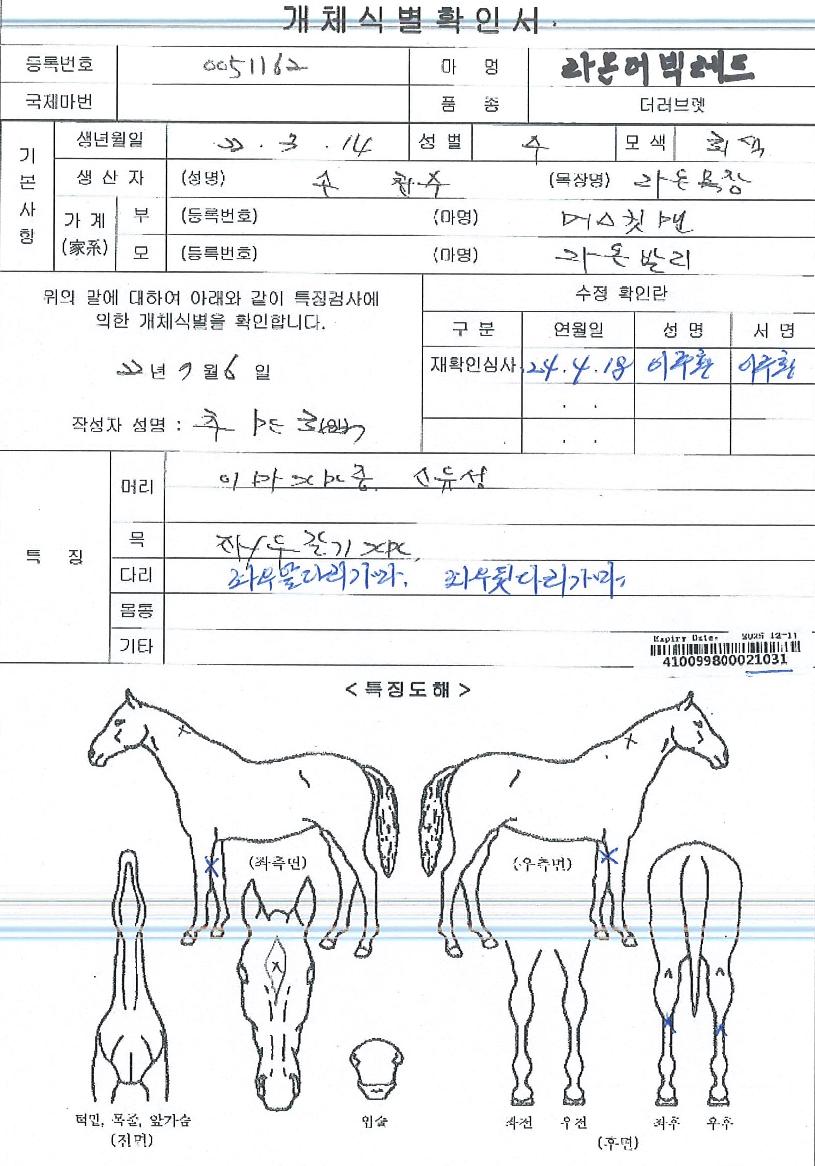 개체식별확인서.
등록번호 0051162 마 명 라온더빅레드
국제마번 품 종 더러브렛
기본사항
생년월일 22. 3. 14 성별 수 모색 회색
생 산 자 (성명) 손 (목장명) 라온목장
가 계 (家系)
부 (등록번호) (마명) 머스킷맨
모 (등록번호) (마명) 라온밸리
위의 말에 대하여 아래와 같이 특징검사에
의한 개체식별을 확인합니다.
22년 9월 6일
작성자 성명 : 추
수정 확인란
구 분 연월일 성 명 서 명
재확인심사 24.4.18 이주환 이주환
특 징
머리
목 좌/우 갈기
다리 좌우앞다리가마, 좌우뒷다리가마,
몸통
기타
Expiry Date. 2025 12-11
410099800021031
<특징도해>
(좌측면) (우측면)
턱밑, 목줄, 앞가슴
(전면)
입술
좌전 우전 좌후 우후
(후면)